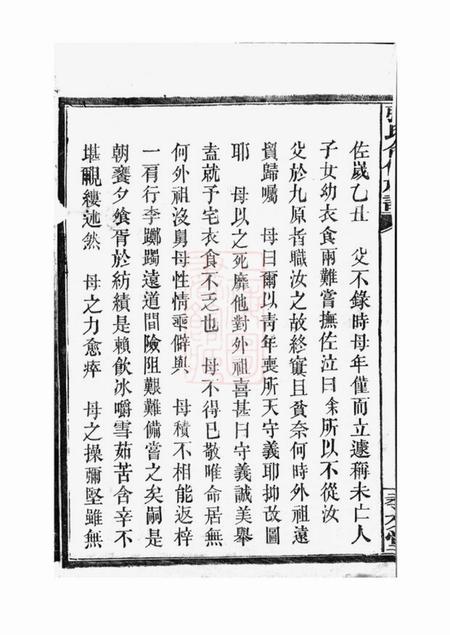 佐歲乙丑　父不錄時母年僅而立遽稱未亡人
子女幼衣食兩難嘗撫佐泣曰余所以不從汝
父於九原者職汝之故終窶且貧奈何時外祖遠
貿歸囑　母曰爾以青年喪所天守義耶抑改圖
耶　母以之死靡他對外祖喜甚曰守義誠美舉
盍就予宅衣食不乏也　母不得已敬唯命居無
何外祖沒舅母性情乖僻與　母積不相能返梓
一肩行李躑躅遠道間險阻艱難備嘗之矣嗣是
朝饔夕飧胥於紡績是賴飲冰嚼雪茹苦含辛不
堪覼縷迆然　母之力愈瘁　母之操彌堅雖無